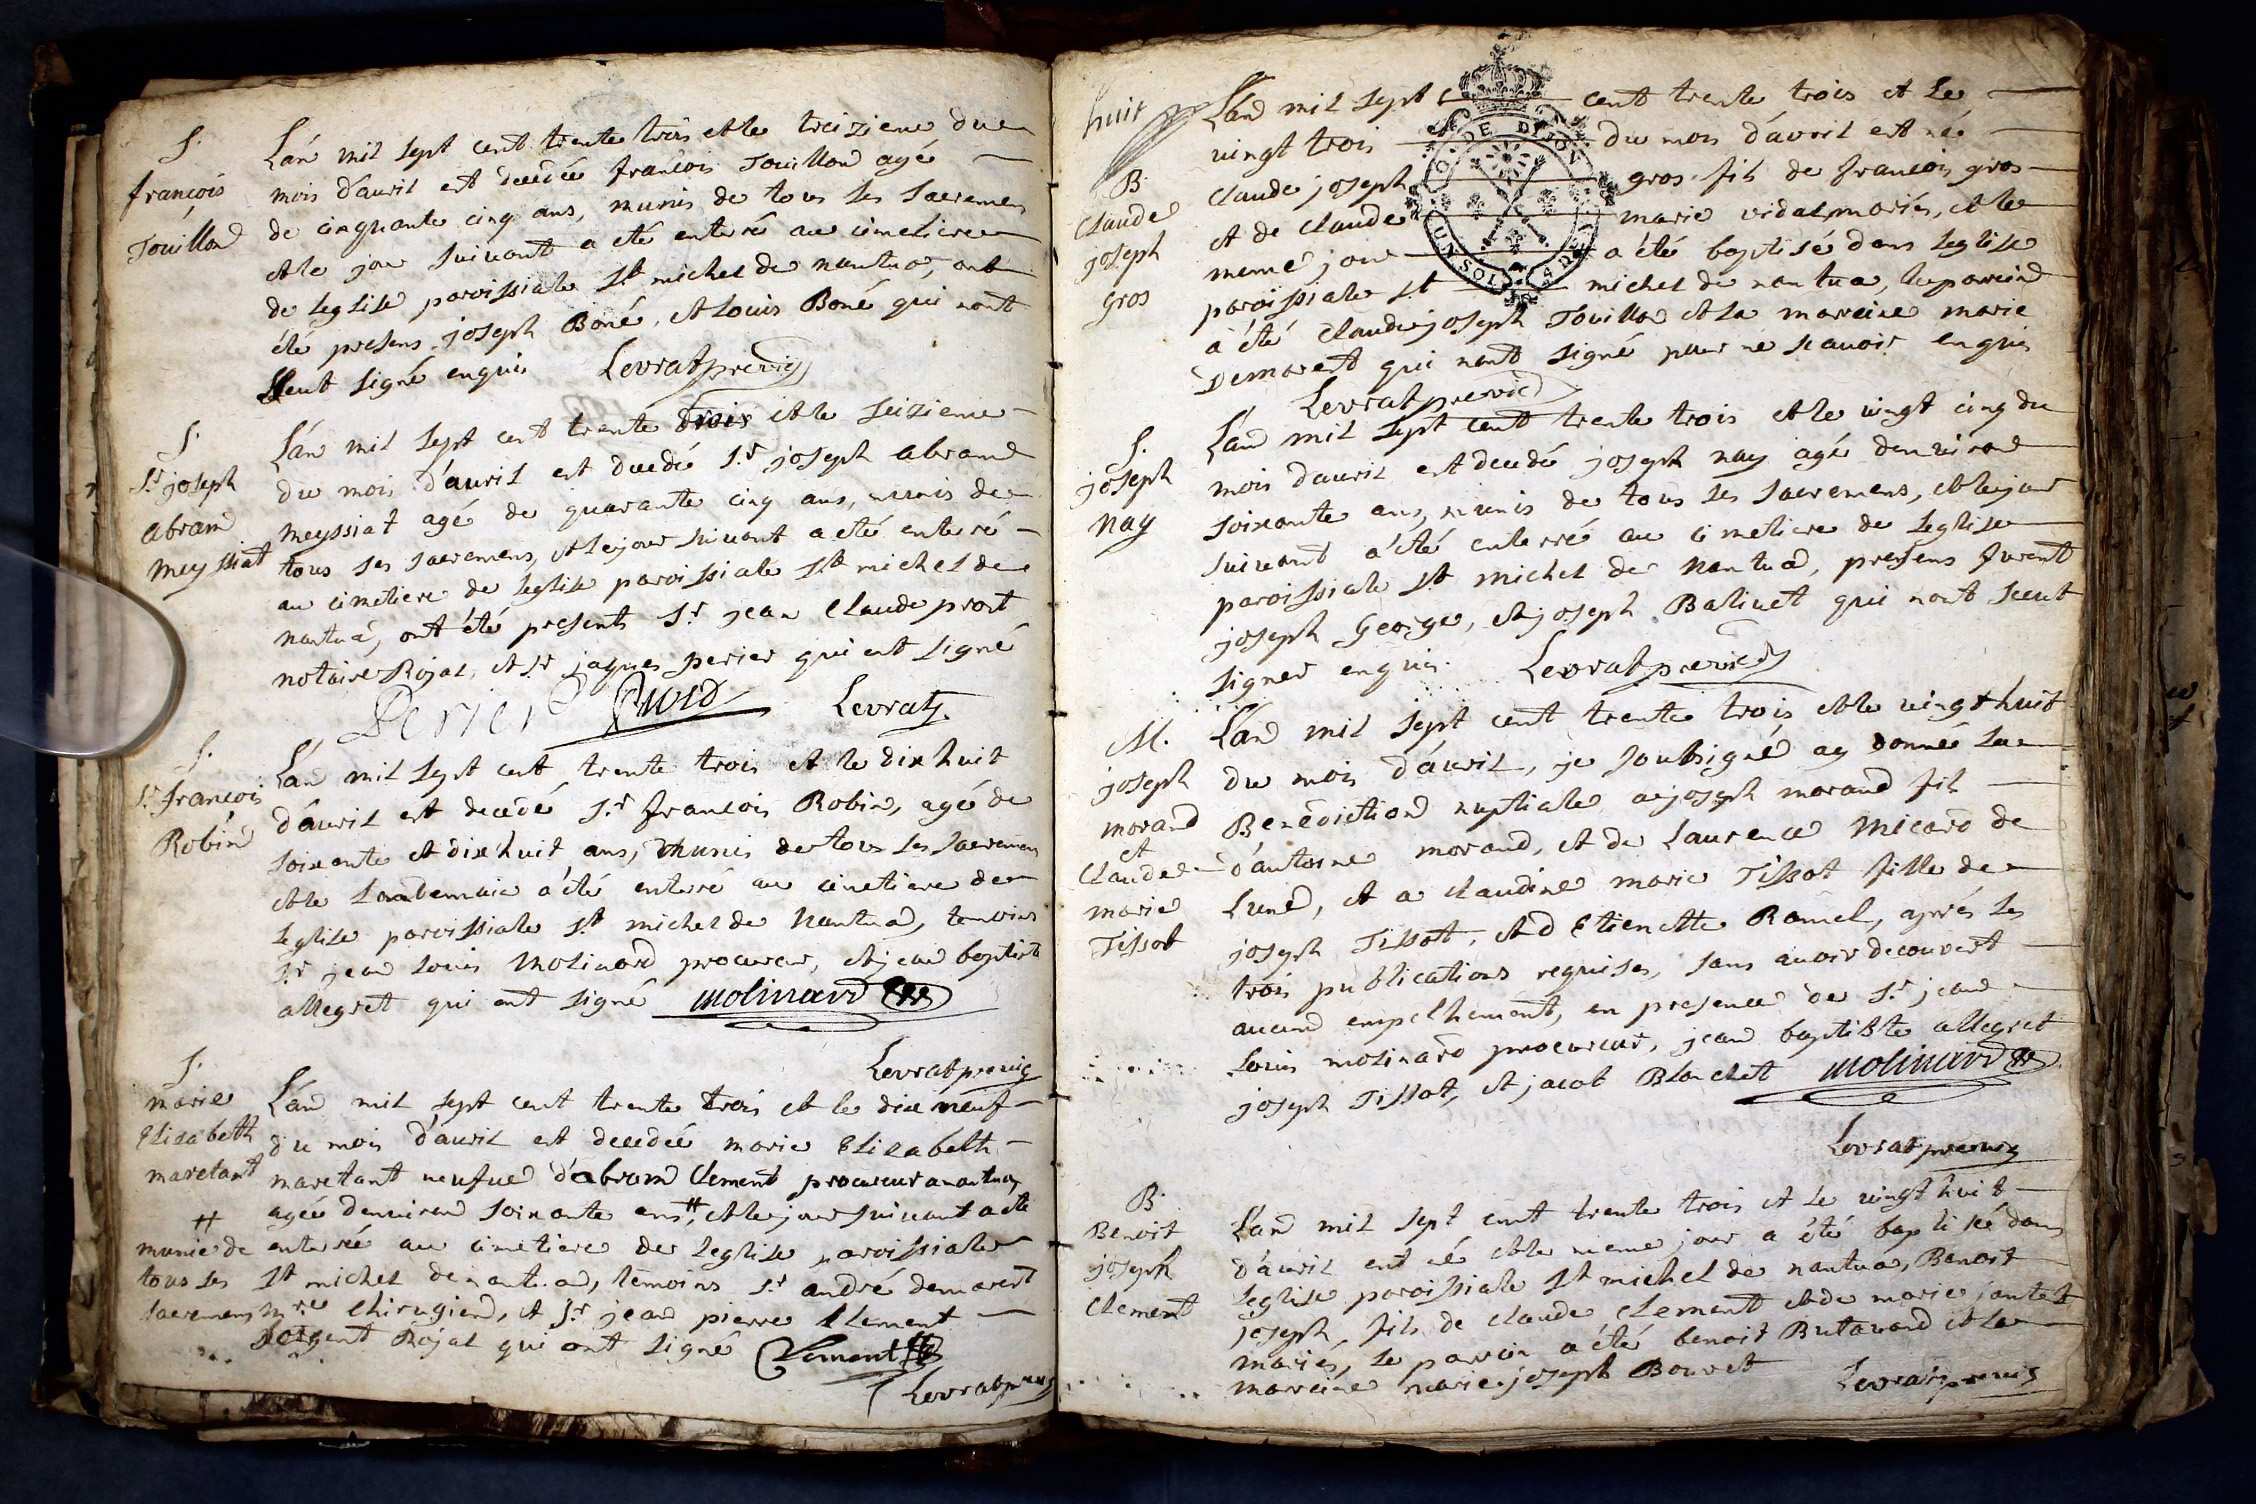 S.
françois
Touillon
L'an mil sept cent trente trois et le treizieme du
mois d'avril est decedée françois Touillon agé
de cinquante cinq ans, munis de tous ses sacremens
et le jour suivant a eté enteré au cimetiere
de leglise paroissiale st michel de nantua, ont
été presens joseph Boné, et Louis Boné qui nont
sceut signé enquis Levrat previcʳ
S.
sr joseph
abram
meyssiat
L'an mil sept cent trente trois et le seizieme
du mois d'avril est decedé sr joseph abram
meyssiat agé de quarante cinq ans, munis de
tous ses sacremens, et le jour suivant a eté enteré
au cimetiere de leglise paroissiale st michel de
nantua, ont été presents sr jean claude prost
notaire Royal, et sr jaques perier qui ont signé
Perier Levrat
S.
sr françois
Robin
L'an mil sept cent trente trois et le dix huit
d'avril est decedé sr françois Robin, agé de
soixante et dix huit ans, munis de tous ses sacremens
et le landemain a été enteré au cimetiere de
leglise paroissiale st michel de Nantua, temoins
sr jean Louis Molinard procureur, et jean baptiste
allegret qui ont signé Molinard
Levrat previc
S.
marie
Elisabeth
maretant
L'an mil sept cent trente trois et le dix neuf
du mois d'avril est decedée marie Elisabeth
maretant veufve d'abram Clement procureur a nantua
agée denviron soixante ans #, et le jour suivant a eté
# munie de tous ses sacremens
enterée au cimetiere de leglise paroissiale
st michel de nantua, temoins sr andré demarest
mre chirugien, et sr jean pierre Clement
sergent Royal qui ont signé Clement
Levrat previc
huit
B.
Claude
joseph
gros
L'an mil sept c cent trente trois et le
vingt trois du mois d'avril est né
claude joseph gros fils de françois gros
et de claude marie vidal mariés, et le
meme jour a été baptisé dans leglise
paroissiale st michel de nantua, le parrein
a été claude joseph Touillon et la marreine marie
Demarest qui nont signé pour ne scavoir enquis
Levrat previc
G. DE DIJON
UN SOL 4 DEN.
S.
joseph
nay
L'an mil sept cent trente trois et le vingt cinq du
mois d'avril est decedé joseph nay agé denviron
soixante ans, munis de tous ses sacremens, et le jour
suivant a été enterré au cimetiere de leglise
paroissiale st michel de Nantua, presens furent
joseph George, et joseph Balivet qui nont sceut
signer enquis. Levrat previc
M.
joseph
morand
et
Claude
marie
Tissot
L'an mil sept cent trente trois et le vingt huit
du mois d'avril, je soubsigné ay donné la
Benediction nuptiale a joseph morand fils
d'antoine morand, et de Laurence Micard de
Lund, et a claudine marie Tissot fille de
joseph Tissot, et d Etienette Ramel, aprés les
trois publications requises, sans avoir decouvert
aucun empechement, en presence de sr jean
Louis molinard procureur, jean baptiste allegret
joseph Tissot, et jacob Blanchet Molinard
Levrat previc
B.
Benoit
joseph
Clement
L'an mil sept cent trente trois et le vingt huit
d'avril est né et le meme jour a été baptisé dans
leglise paroissiale st michel de nantua, Benoit
joseph, fils de claude clement et de marie jantet
mariés, le parrin a été benoit Butavand et la
marreine marie joseph Bouvet Levrat previc